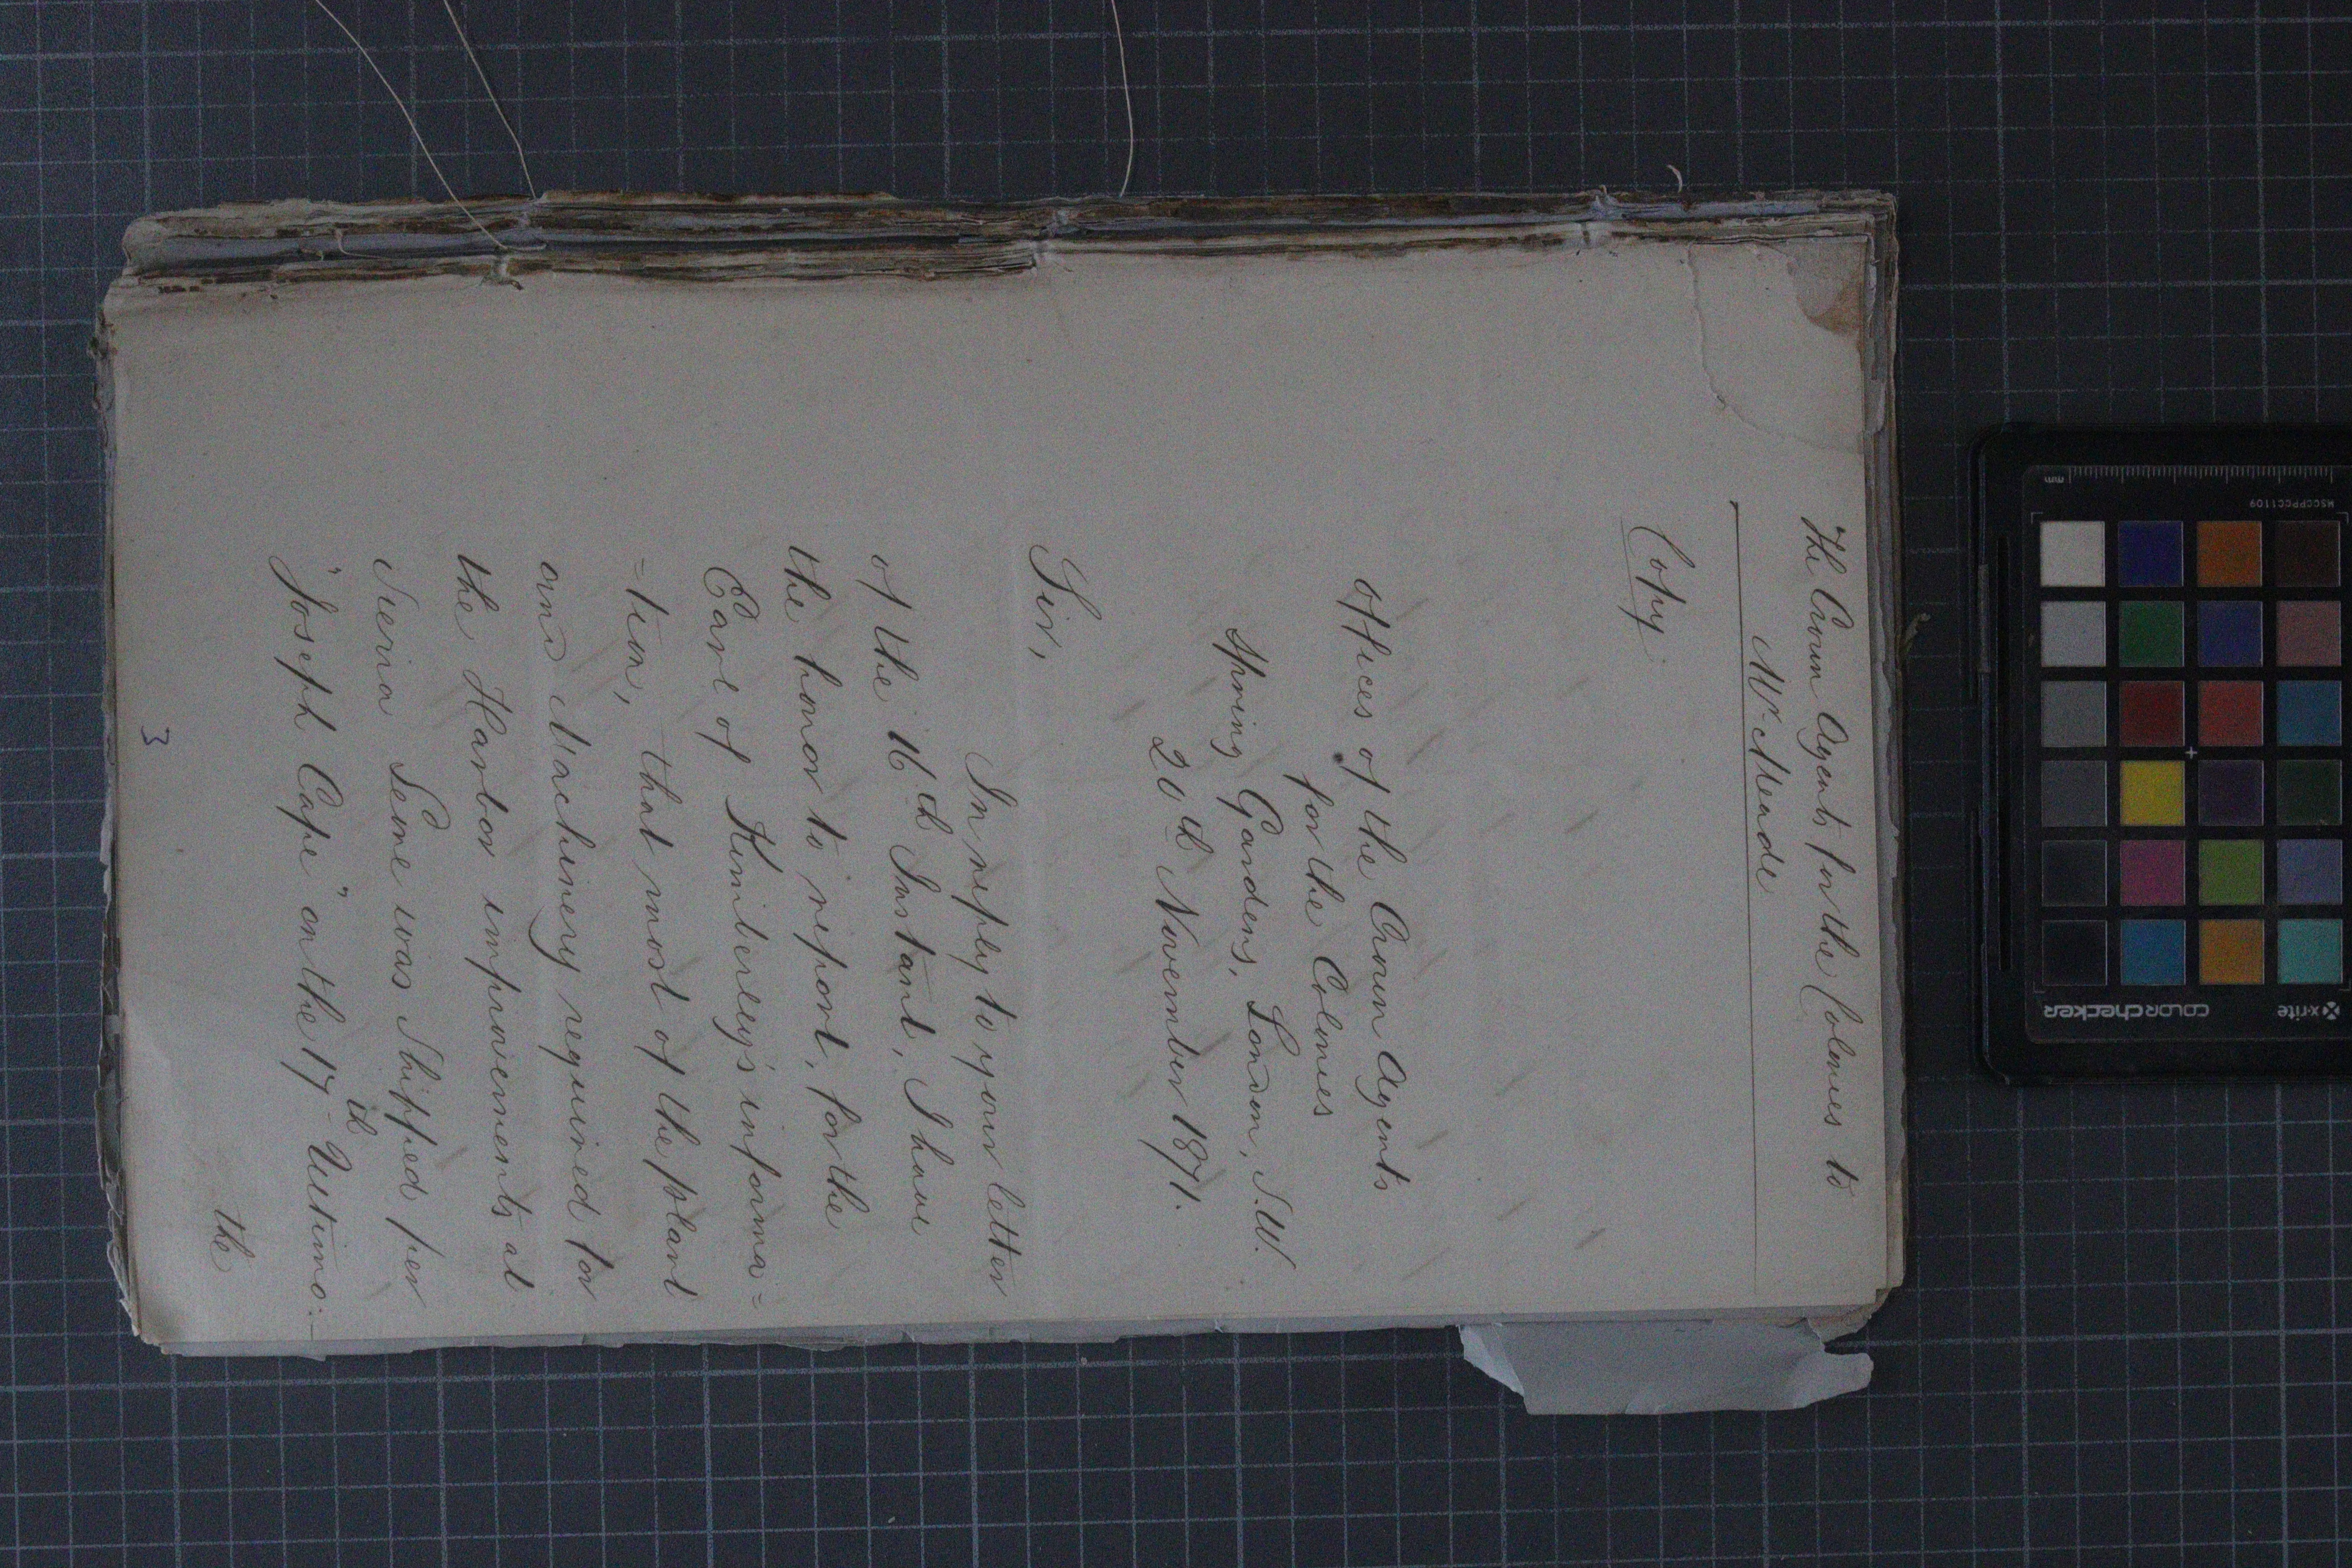 The Crown Agents for the Colonies to
Mr. Meade
Copy.
Offices of the Crown Agents
for the Colonies
Spring Gardens, London, S.W.
20th November 1871.
Sir,
In reply to your letter
of the 16th Instant, I have
the honor to report, for the
Earl of Kimberley's informa=
=tion, that most of the plant
and Machinery required for
the Harbor improvements at
Sierra Leone was Shipped per
"Joseph Cape" on the 17th Ultimo:
the
3
mm
MSCCPPCC1109
x-rite
colorchecker